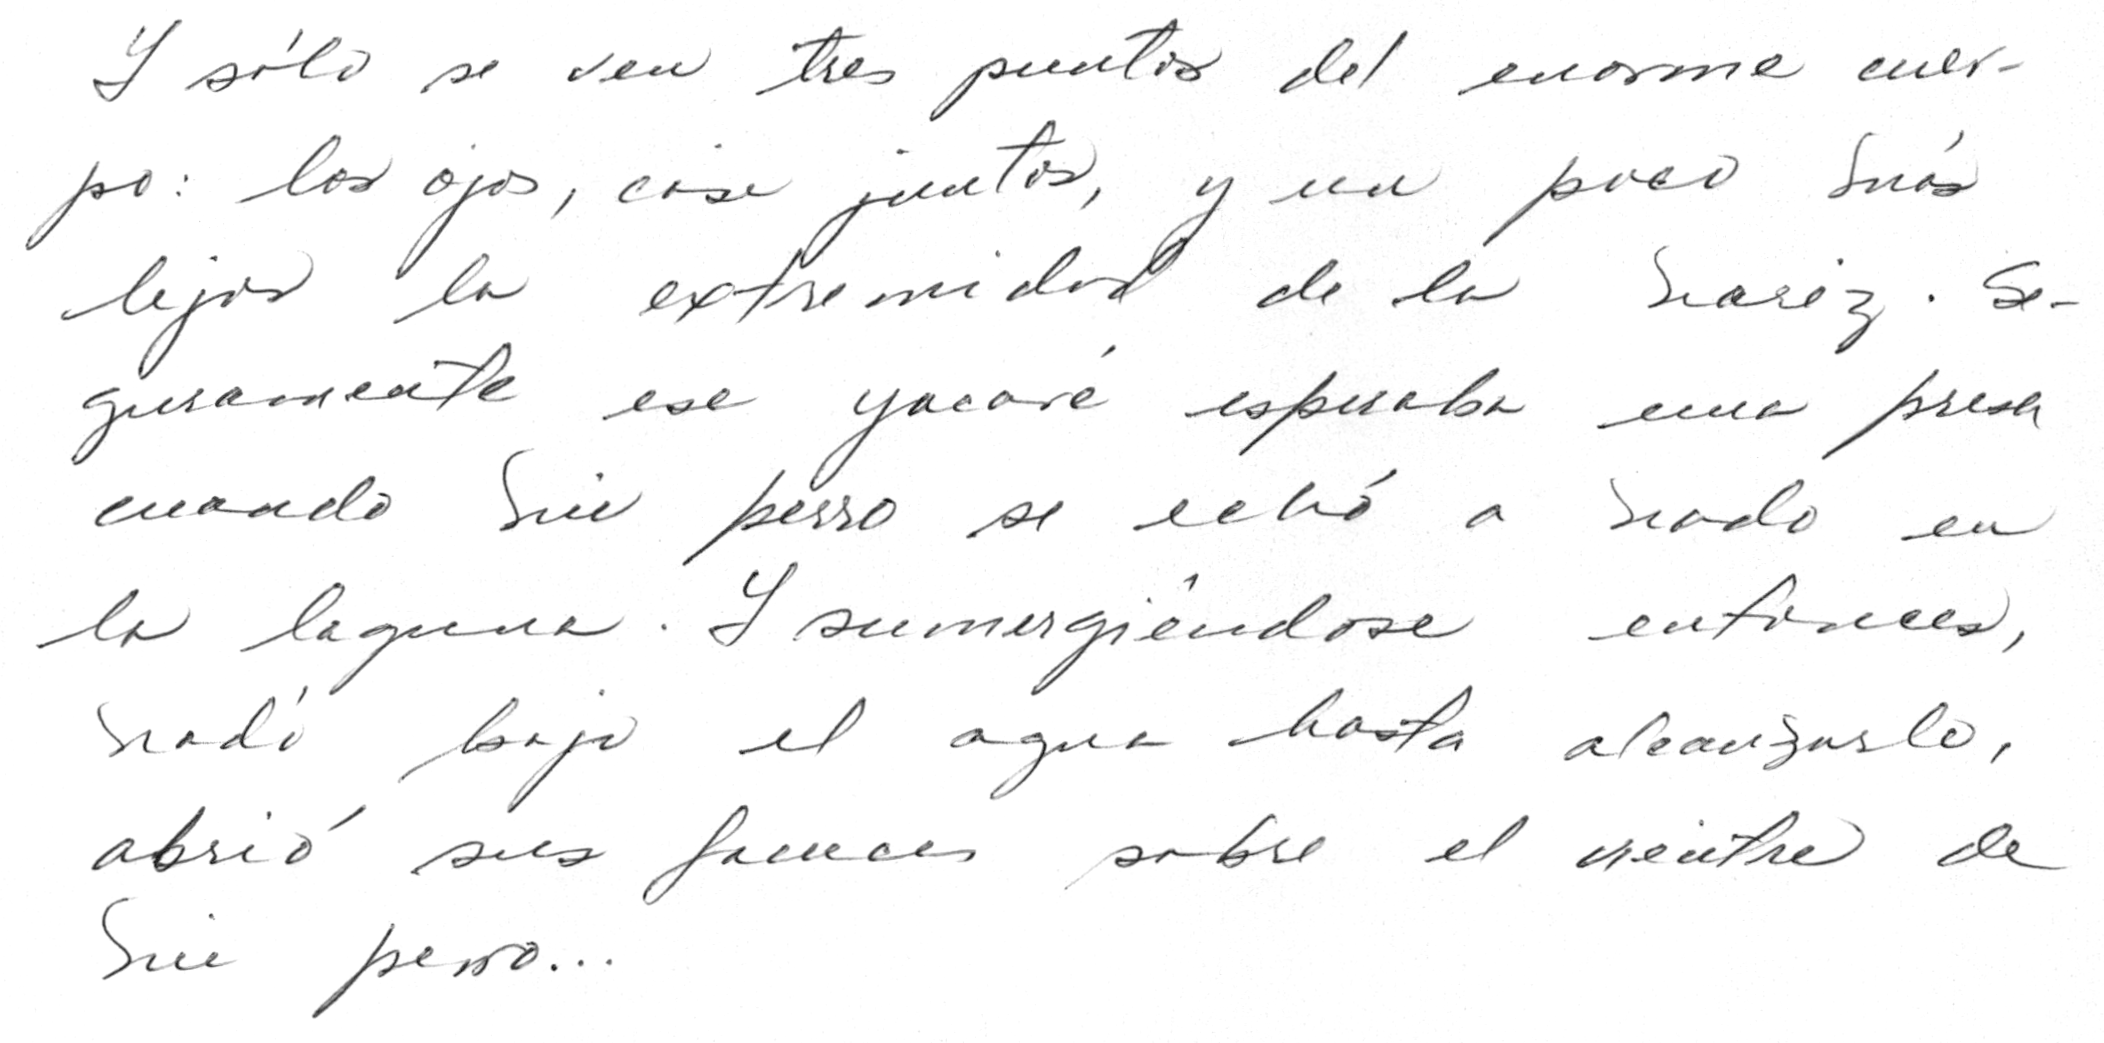 Y sólo se ven tres puntos del enorme cuer-
po: los ojos, casi juntos, y un poco más
lejos la extremidad de la nariz. Se-
guramente ese yacaré esperaba una presa
cuando mi perro se echó a nado en
la laguna. Y sumergiéndose entonces,
nadó bajo el agua hasta alcanzarlo,
abrió sus fauces sobre el vientre de
mi perro...